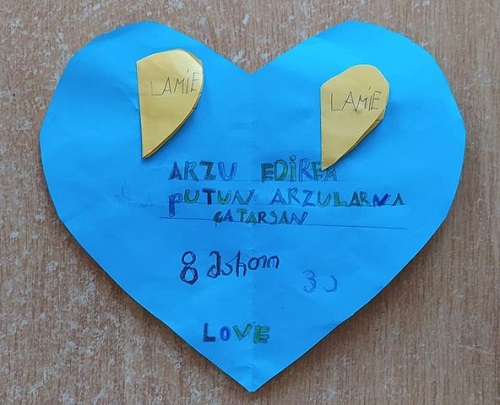 LAMİE
LAMİE
ARZU EDİREM
PUTUN ARZULARNA
ÇATARSAN
8 მარტი
LOVE